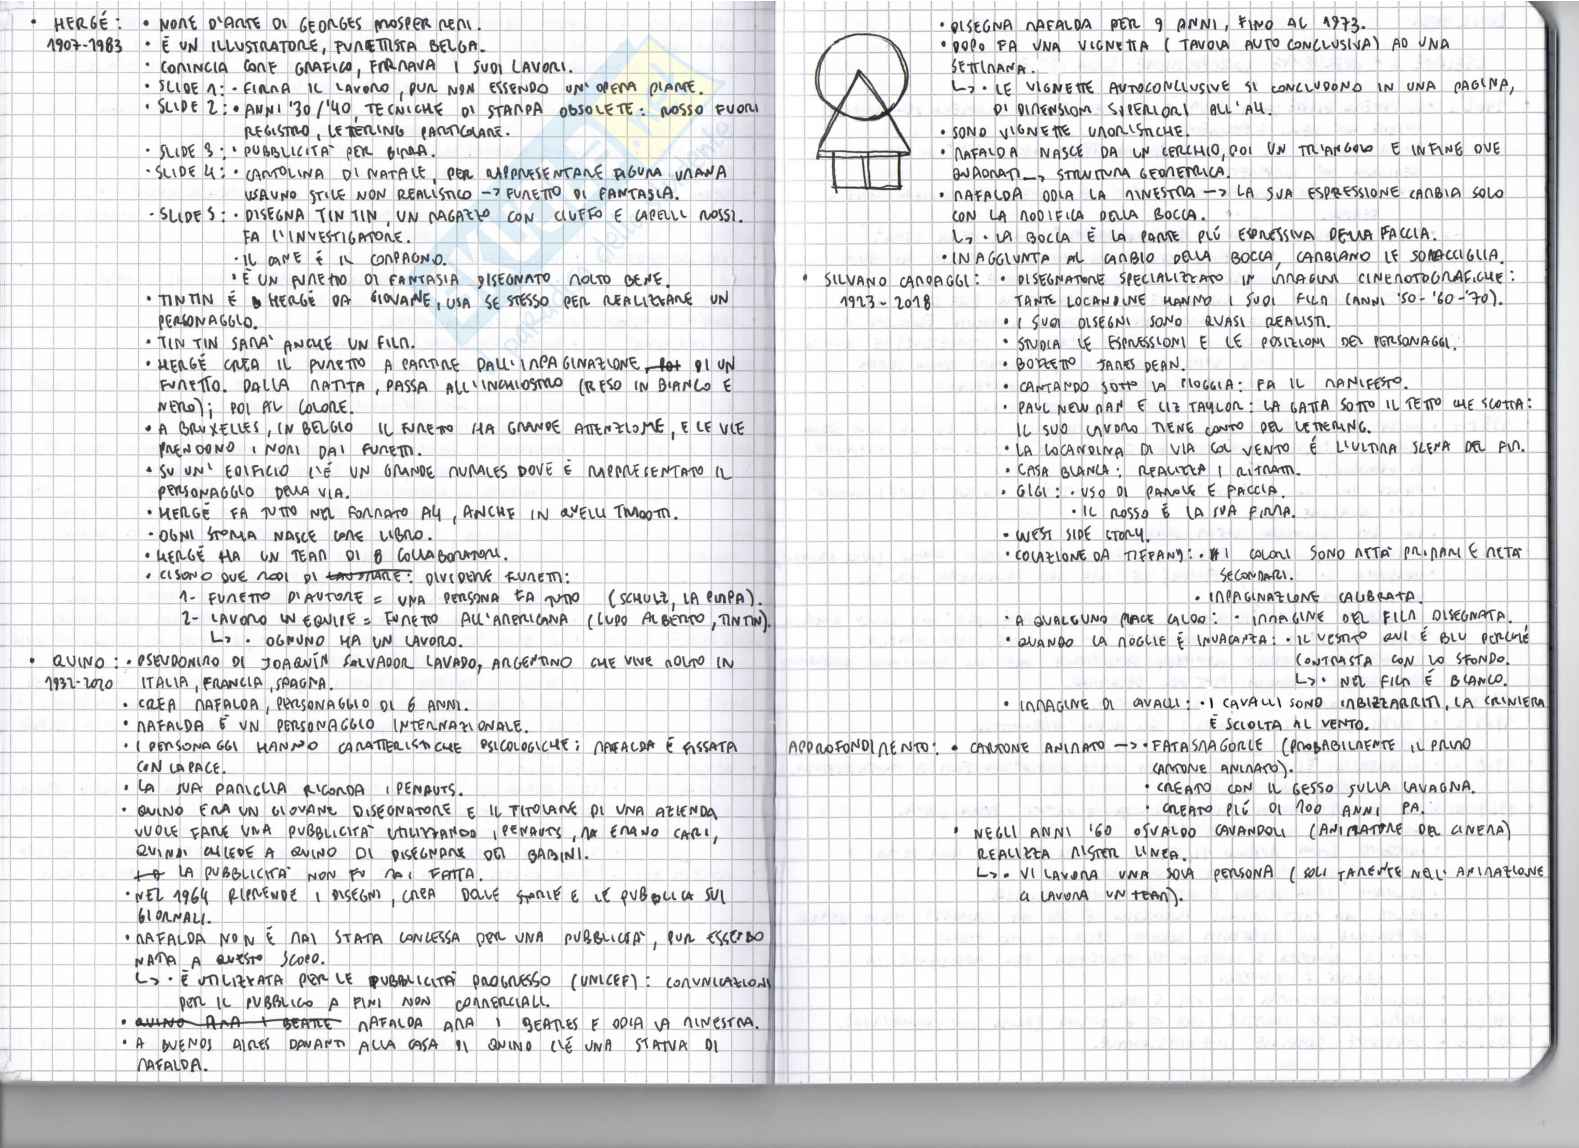 • HERGÉ: • NOME D'ARTE DI GEORGES PROSPER REMI.
1907-1983 • È UN ILLUSTRATORE, FUMETTISTA BELGA.
• COMINCIA COME GRAFICO, FIRMAVA I SUOI LAVORI.
• SLIDE 1: • FIRMA IL LAVORO, PUR NON ESSENDO UN'OPERA D'ARTE.
• SLIDE 2: • ANNI '30/'40, TECNICHE DI STAMPA OBSOLETE: ROSSO FUORI
REGISTRO, LETTERING PARTICOLARE.
• SLIDE 3: • PUBBLICITÀ PER BIRRA.
• SLIDE 4: • CARTOLINA DI NATALE, PER RAPPRESENTARE FIGURA UMANA
USA UNO STILE NON REALISTICO → FUMETTO DI FANTASIA.
• SLIDE 5: • DISEGNA TIN TIN, UN RAGAZZO CON CIUFFO E CAPELLI ROSSI.
FA L'INVESTIGATORE.
• IL CANE È IL COMPAGNO.
• È UN FUMETTO DI FANTASIA DISEGNATO MOLTO BENE.
• TINTIN È HERGÉ DA GIOVANE, USA SE STESSO PER REALIZZARE UN
PERSONAGGIO.
• TIN TIN SARA' ANCHE UN FILM.
• HERGÉ CREA IL FUMETTO A PARTIRE DALL'IMPAGINAZIONE DI UN
FUMETTO. DALLA MATITA, PASSA ALL'INCHIOSTRO (RESO IN BIANCO E
NERO); POI AL COLORE.
• A BRUXELLES, IN BELGIO IL FUMETTO HA GRANDE ATTENZIONE, E LE VIE
PRENDONO I NOMI DAI FUMETTI.
• SU UN' EDIFICIO C'È UN GRANDE MURALES DOVE È RAPPRESENTATO IL
PERSONAGGIO DELLA VIA.
• HERGÉ FA TUTTO NEL FORMATO A4, ANCHE IN QUELLI TRADOTTI.
• OGNI STORIA NASCE COME LIBRO.
• HERGÉ HA UN TEAM DI 8 COLLABORATORI.
• CI SONO DUE MODI DI DIVIDERE FUMETTI:
1- FUMETTO D'AUTORE = UNA PERSONA FA TUTTO (SCHULZ, LA PIMPA).
2- LAVORO IN EQUIPE = FUMETTO ALL'AMERICANA (LUPO ALBERTO, TINTIN).
↳ • OGNUNO HA UN LAVORO.
• QUINO: • PSEUDONIMO DI JOAQUÍN SALVADOR LAVADO, ARGENTINO CHE VIVE MOLTO IN
1932-2020 ITALIA, FRANCIA, SPAGNA.
• CREA MAFALDA, PERSONAGGIO DI 6 ANNI.
• MAFALDA È UN PERSONAGGIO INTERNAZIONALE.
• I PERSONAGGI HANNO CARATTERISTICHE PSICOLOGICHE; MAFALDA È FISSATA
CON LA PACE.
• LA SUA FAMIGLIA RICORDA I PENAUTS.
• QUINO ERA UN GIOVANE DISEGNATORE E IL TITOLARE DI UNA AZIENDA
VUOLE FARE UNA PUBBLICITÀ UTILIZZANDO I PENAUTS, MA ERANO CARI,
QUINDI CHIEDE A QUINO DI DISEGNARE DEI BABINI.
LA PUBBLICITÀ NON FU MAI FATTA.
• NEL 1964 RIPRENDE I DISEGNI, CREA DELLE STORIE E LE PUBBLICA SUI
GIORNALI.
• MAFALDA NON È MAI STATA CONCESSA PER UNA PUBBLICITÀ, PUR ESSENDO
NATA A QUESTO SCOPO.
↳ • È UTILIZZATA PER LE PUBBLICITÀ PROGRESSO (UNICEF): COMUNICAZIONI
PER IL PUBBLICO A FINI NON COMMERCIALI.
• QUINO AMA I BEATLE MAFALDA AMA I BEATLES E ODIA LA MINESTRA.
• A BUENOS AIRES DAVANTI ALLA CASA DI QUINO C'È UNA STATUA DI
MAFALDA.
• DISEGNA MAFALDA PER 9 ANNI, FINO AL 1973.
• DOPO FA UNA VIGNETTA (TAVOLA AUTOCONCLUSIVA) AD UNA
SETTIMANA.
↳ • LE VIGNETTE AUTOCONCLUSIVE SI CONCLUDONO IN UNA PAGINA,
DI DIMENSIONI SUPERIORI ALL'A4.
• SONO VIGNETTE UMORISTICHE.
• MAFALDA NASCE DA UN CERCHIO, POI UN TRIANGOLO E INFINE DUE
QUADRATI → STRUTTURA GEOMETRICA.
• MAFALDA ODIA LA MINESTRA → LA SUA ESPRESSIONE CAMBIA SOLO
CON LA MODIFICA DELLA BOCCA.
↳ • LA BOCCA È LA PARTE PIÚ ESPRESSIVA DELLA FACCIA.
• IN AGGIUNTA AL CAMBIO DELLA BOCCA, CAMBIANO LE SOPRACCIGLIA.
• SILVANO CAMPAGGI: • DISEGNATORE SPECIALIZZATO IN IMMAGINI CINEMOTOGRAFICHE:
1923-2018 TANTE LOCANDINE HANNO I SUOI FILM (ANNI '50-'60-'70).
• I SUOI DISEGNI SONO QUASI REALISTI.
• STUDIA LE ESPRESSIONI E LE POSIZIONI DEI PERSONAGGI.
• BOZZETTO JAMES DEAN.
• CANTANDO SOTTO LA PIOGGIA: FA IL MANIFESTO.
• PAUL NEWMAN E LIZ TAYLOR: LA GATTA SOTTO IL TETTO CHE SCOTTA:
IL SUO LAVORO TIENE CONTO DEL LETTERING.
• LA LOCANDINA DI VIA COL VENTO È L'ULTIMA SCENA DEL FILM.
• CASA BLANCA: REALIZZA I RITRATTI.
• GIGI: • USO DI PAROLE E FACCIA.
• IL ROSSO È LA SUA FIRMA.
• WEST SIDE STORY.
• COLAZIONE DA TIFFANY: • I COLORI SONO METÀ PRIMARI E METÀ
SECONDARI.
• IMPAGINAZIONE CALIBRATA.
• A QUALCUNO PIACE CALDO: • IMMAGINE DEL FILM DISEGNATA.
• QUANDO LA MOGLIE È IN VACANZA: • IL VESTITO QUI È BLU PERCHÉ
CONTRASTA CON LO SFONDO.
↳ • NEL FILM È BIANCO.
• IMMAGINE DI CAVALLI: • I CAVALLI SONO IMBIZZARRITI, LA CRINIERA
È SCIOLTA AL VENTO.
APPROFONDIMENTO: • CARTONE ANIMATO → • FATASMAGORIE (PROBABILMENTE IL PRIMO
CARTONE ANIMATO).
• CREATO CON IL GESSO SULLA LAVAGNA.
• CREATO PIÚ DI 100 ANNI FA.
• NEGLI ANNI '60 OSVALDO CAVANDOLI (ANIMATORE DEL CINEMA)
REALIZZA MISTER LINEA.
↳ • VI LAVORA UNA SOLA PERSONA (SOLITAMENTE NELL'ANIMAZIONE
CI LAVORA UN TEAM).